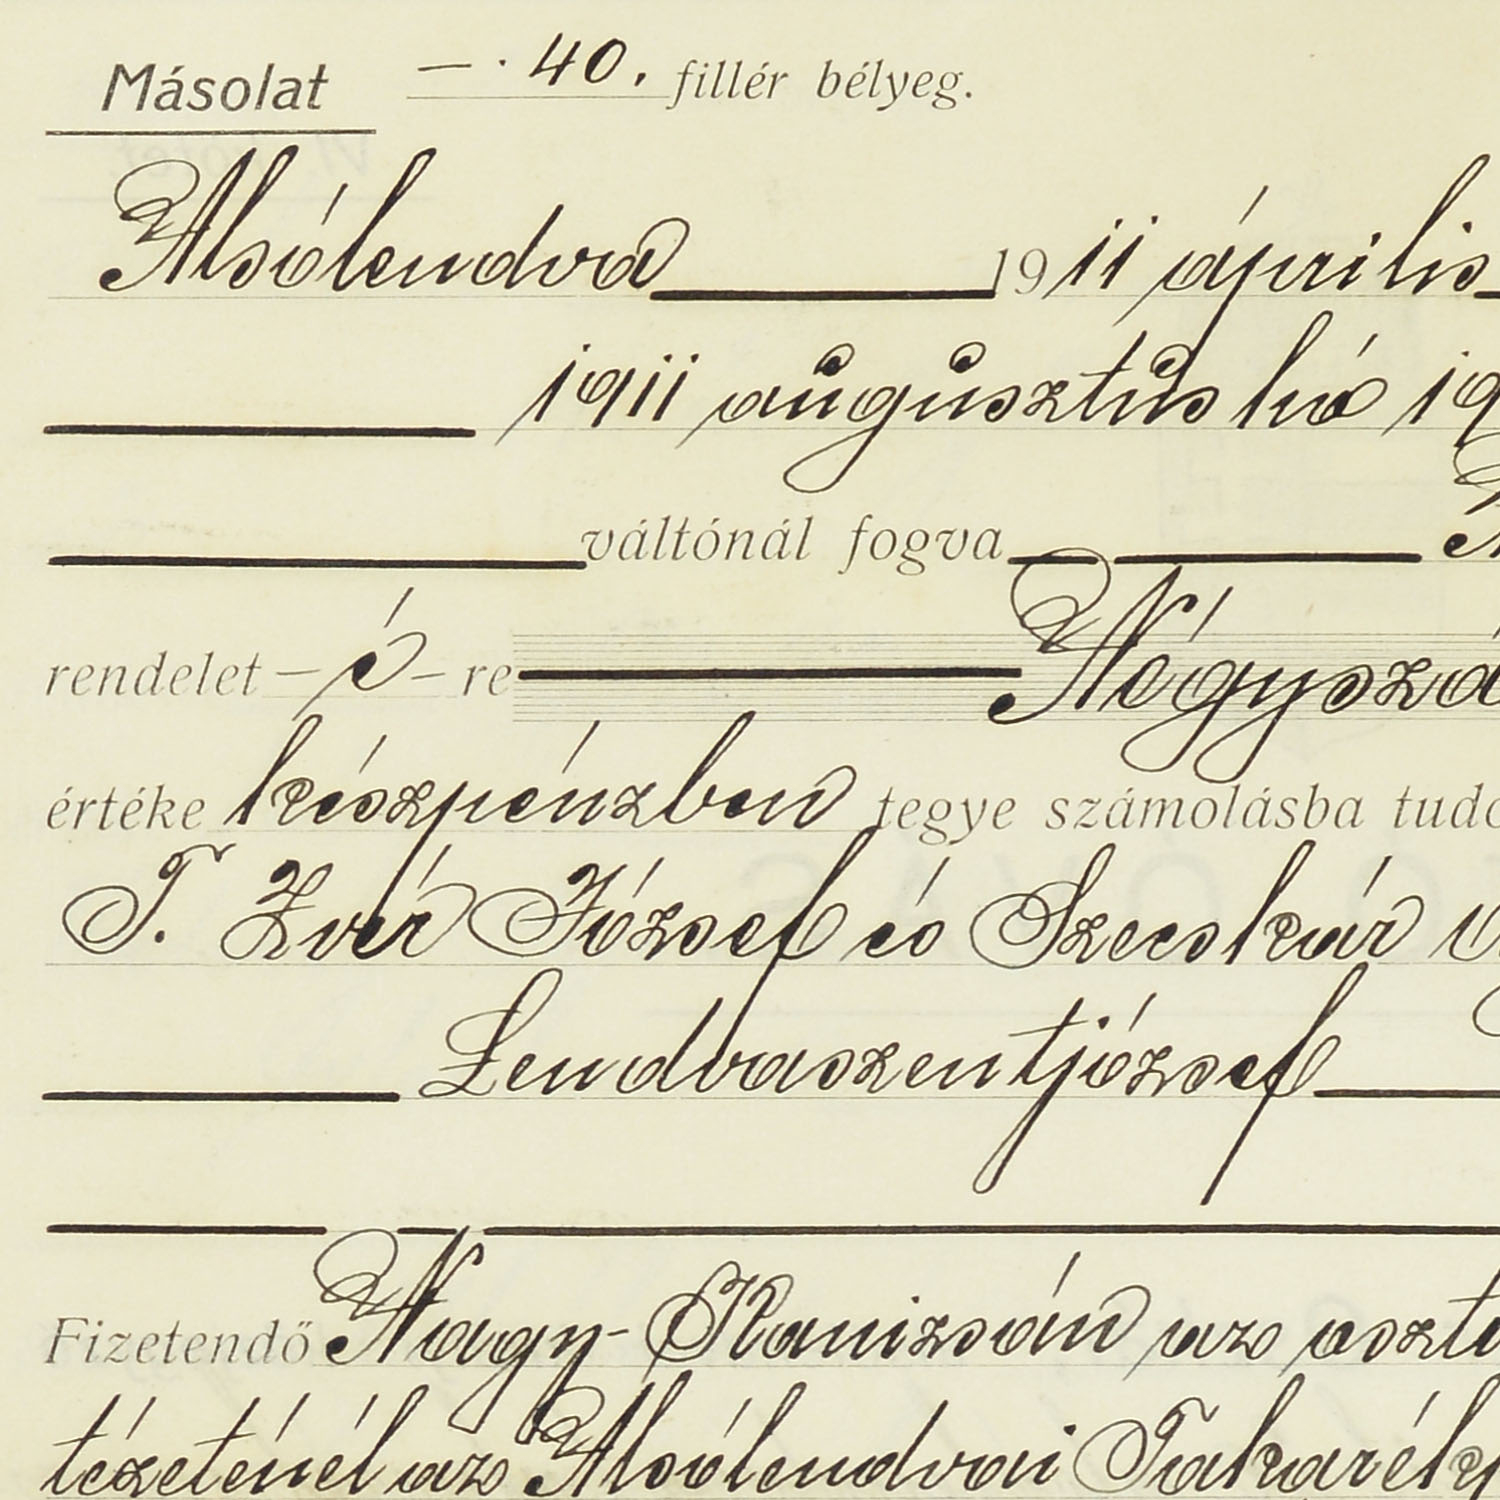 Másolat —. 40. fillér bélyeg.
Alsólendva 1911 április
1911 augusztus hó 19
váltónál fogva
rendelet – é – re Négyszá
értéke készpénzben tegye számolásba tudo
T. Zver József és Szecskár
Lendvaszentjózsef
Fizetendő Nagy-Kanizsán az oszt
tézeténél az Alsólendvai Takarék